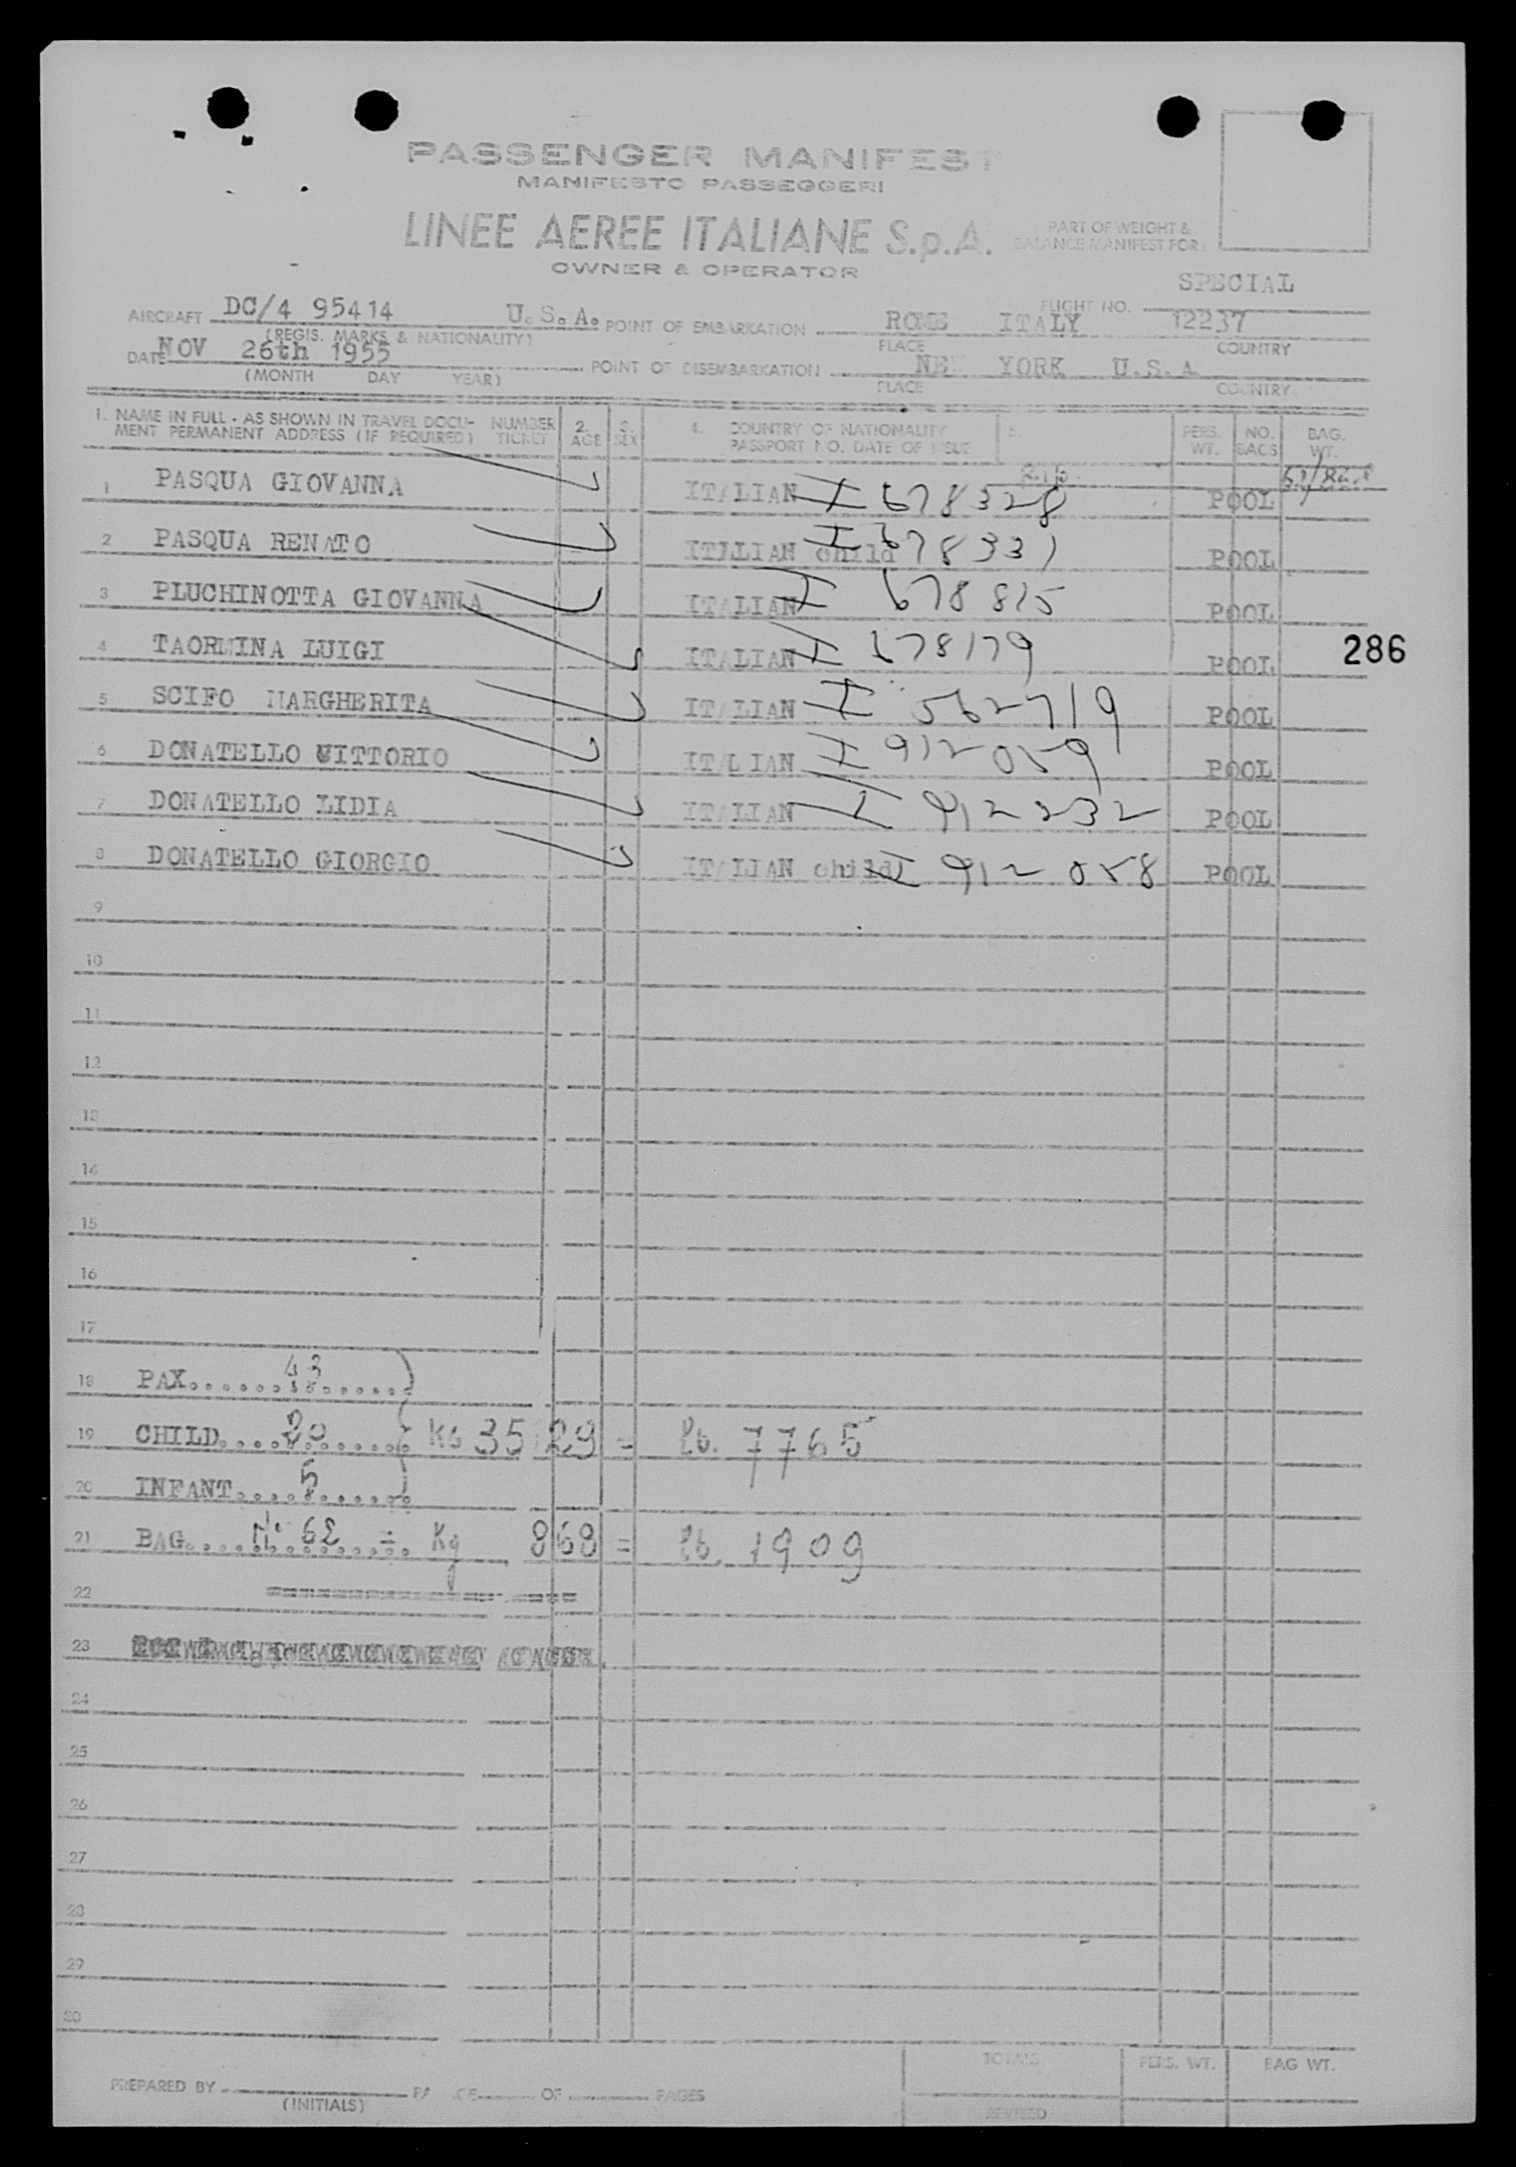 PASSENGER MANIFEST
MANIFESTO PASSEGGERI
LINEE AEREE ITALIANE S.p.A.
OWNER & OPERATOR
PART OF WEIGHT &
BALANCE MANIFEST FOR
SPECIAL
FLIGHT NO. 12237
AIRCRAFT DC/4 95414 U.S.A. POINT OF EMBARKATION ROME ITALY
(REGIS. MARKS & NATIONALITY) PLACE COUNTRY
DATE NOV 26th 1955 POINT OF DISEMBARKATION NEW YORK U.S.A
(MONTH DAY YEAR) PLACE COUNTRY
1. NAME IN FULL - AS SHOWN IN TRAVEL DOCU- NUMBER 2. 3. 4. COUNTRY OF NATIONALITY 5. PERS. NO. BAG.
MENT PERMANENT ADDRESS (IF REQUIRED) TICKET AGE SEX PASSPORT NO. DATE OF ISSUE WT. BAGS WT.
1 PASQUA GIOVANNA ITALIAN I 678328 POOL
2 PASQUA RENATO ITALIAN child I 678331 POOL
3 PLUCHINOTTA GIOVANNA ITALIAN I 678815 POOL
4 TAORMINA LUIGI ITALIAN I 678179 POOL
286
5 SCIFO MARGHERITA ITALIAN I 562719 POOL
6 DONATELLO VITTORIO ITALIAN I 912059 POOL
7 DONATELLO LIDIA ITALIAN I 912232 POOL
8 DONATELLO GIORGIO ITALIAN child I 912058 POOL
9
10
11
12
13
14
15
16
17
18 PAX.......43.......
19 CHILD....20....... Kg 3529 = Lb. 7765
20 INFANT....5.......
21 BAG....N. 62 = Kg 868 = Lb. 1909
22
23
24
25
26
27
28
29
30
TOTALS PERS. WT. BAG WT.
PREPARED BY PAGE OF PAGES
(INITIALS)
REVISED